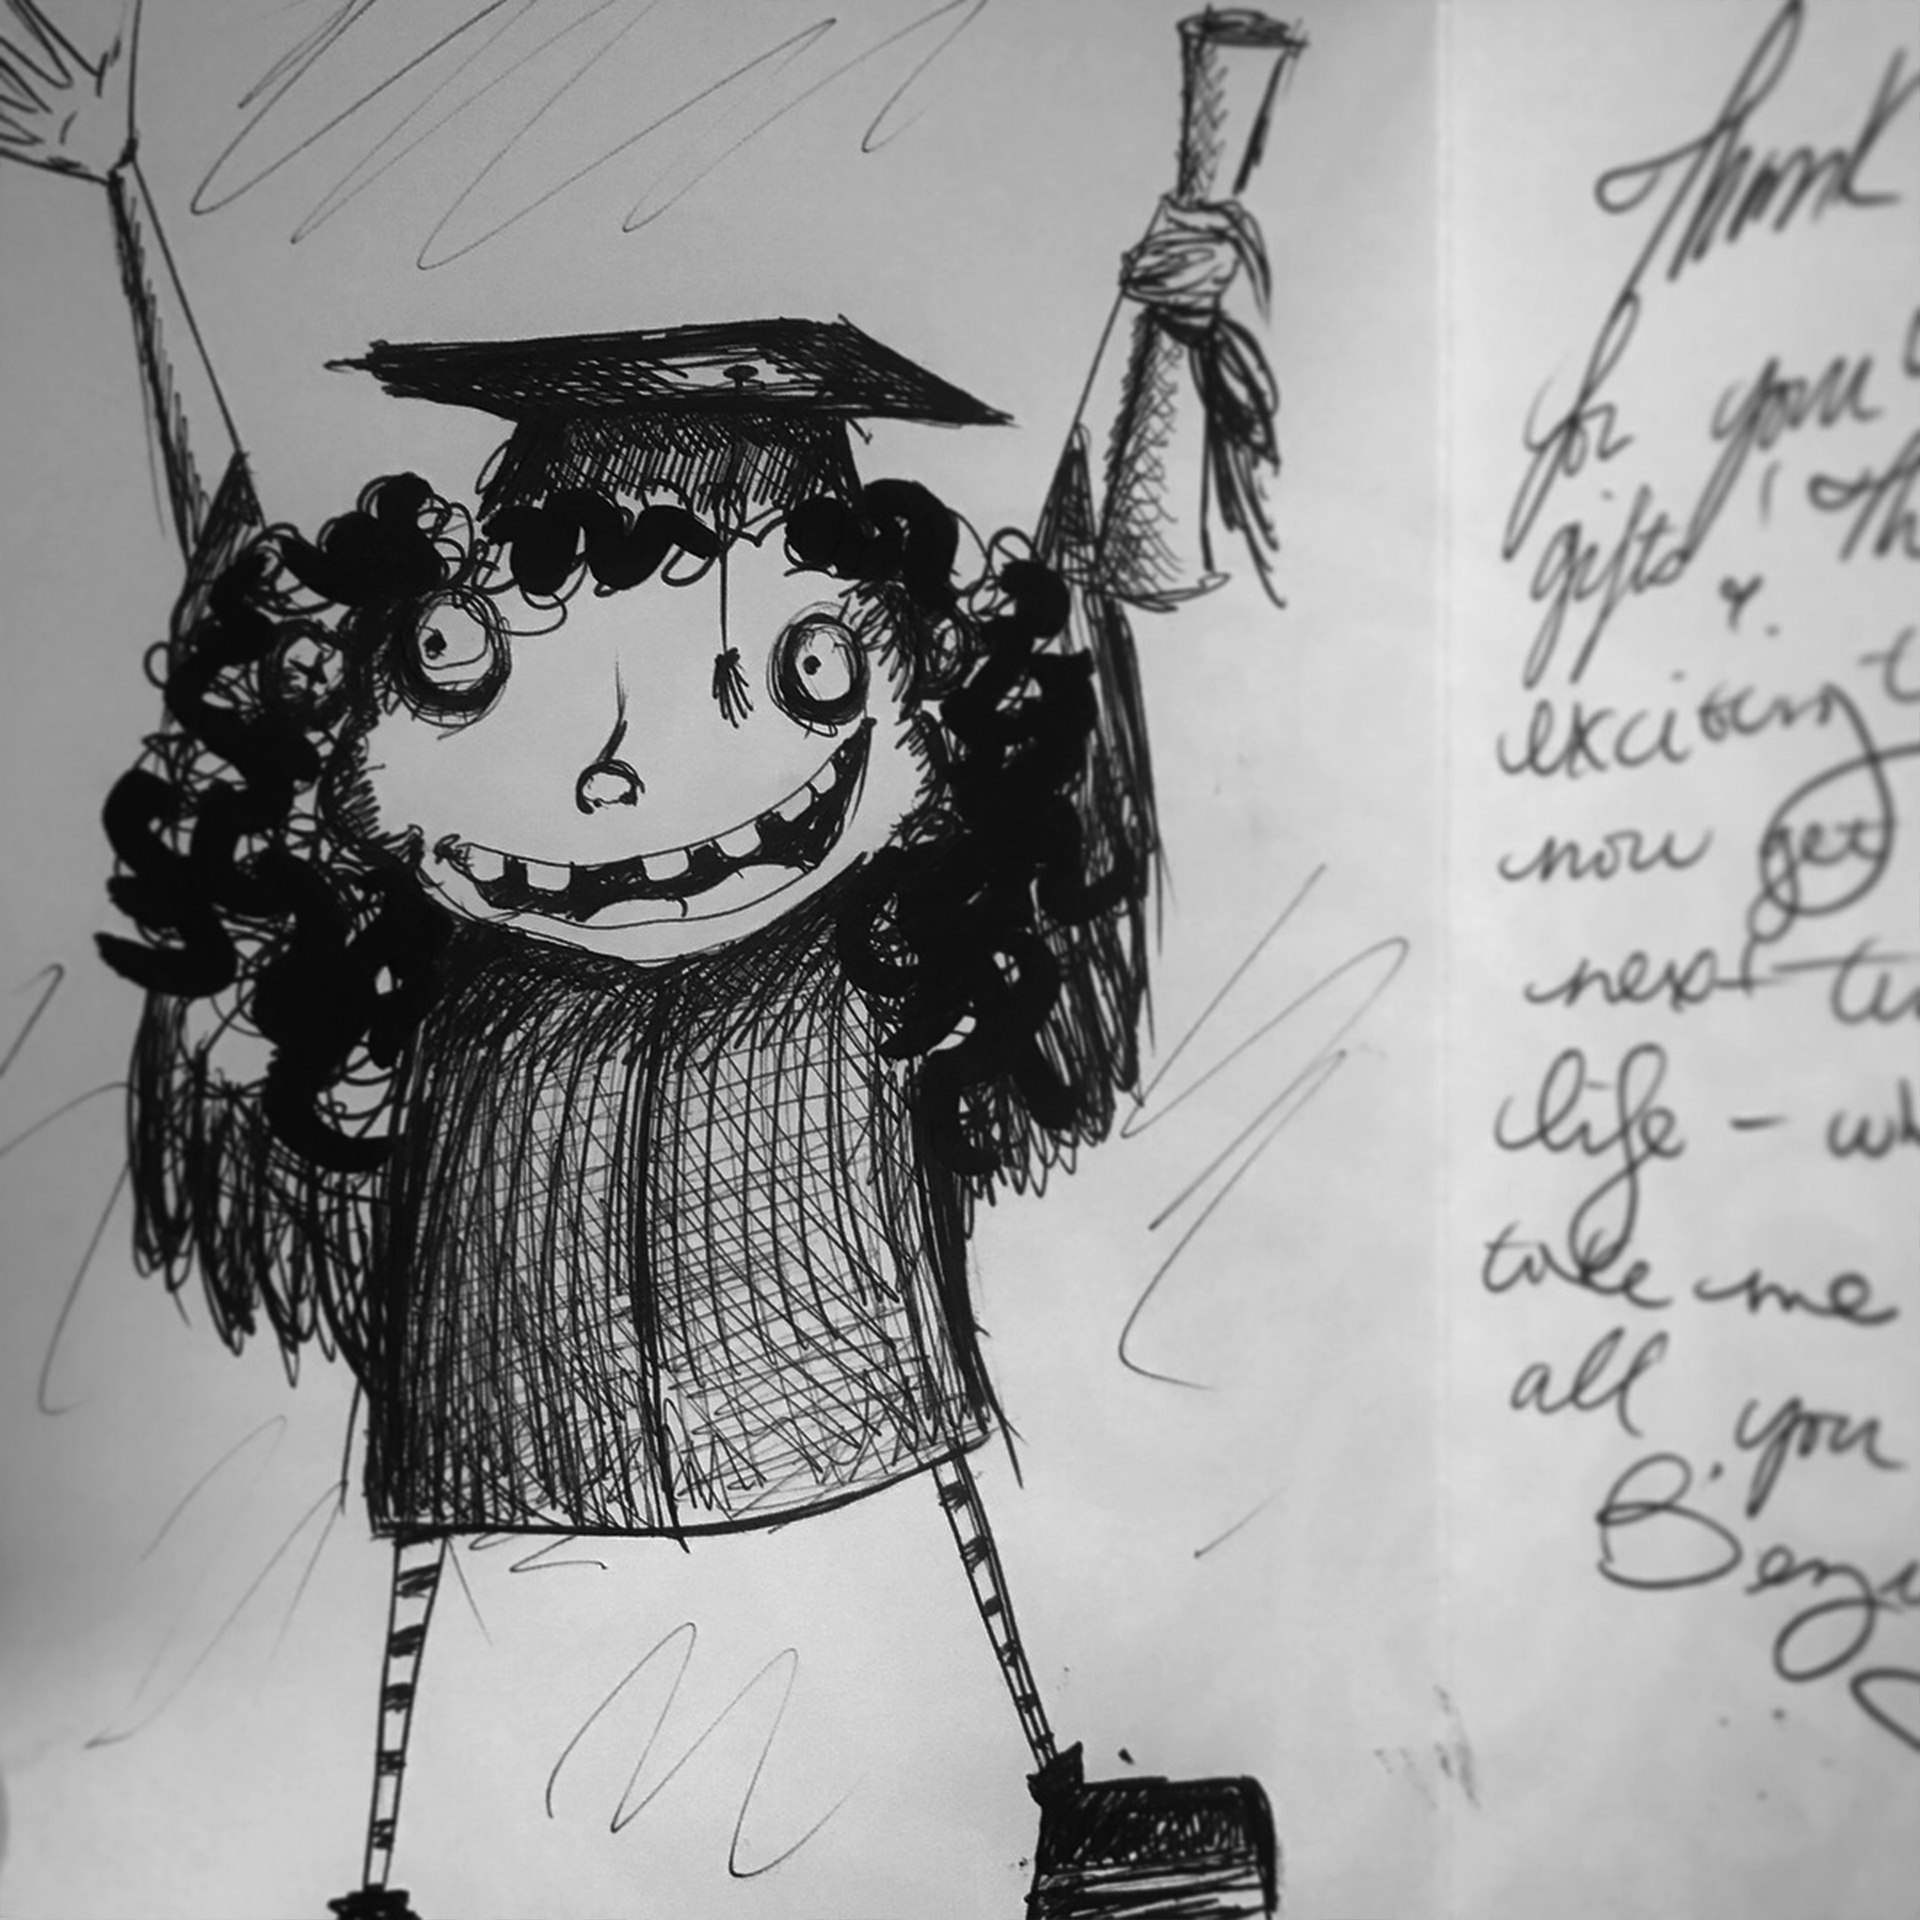 Thank
for your
gifts! Th
exciting t
now get
next
life - wh
take me
all you